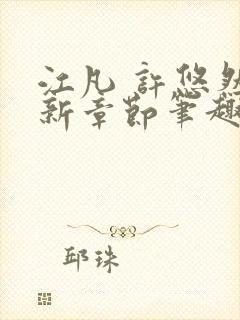 江凡 許悠然
新章節筆趣
邱珠